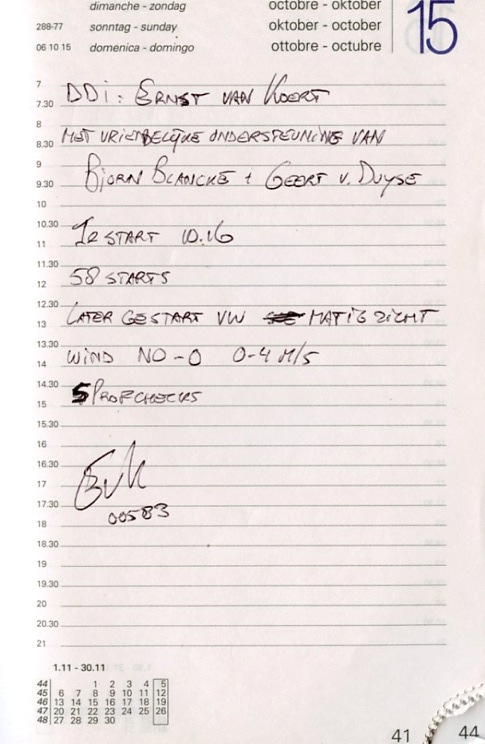 dimanche - zondag octobre - oktober 15
288-77 sonntag - sunday oktober - october
06 10 15 domenica - domingo ottobre - octubre
7
7.30 DDI : ERNST VAN KOERT
8
8.30 MET VRIENDELIJKE ONDERSTEUNING VAN
9
9.30 BJORN BLANCKE + GEERT V. DUYSE
10
10.30 1e START 10.16
11
11.30 58 STARTS
12
12.30 LATER GESTART VW MATIG ZICHT
13
13.30 WIND NO-O 0-4 M/S
14
14.30 5 PROFCHECKS
15
15.30
16
16.30 EvK
17
17.30 00583
18
18.30
19
19.30
20
20.30
21
1.11 - 30.11
44 1 2 3 4 5
45 6 7 8 9 10 11 12
46 13 14 15 16 17 18 19
47 20 21 22 23 24 25 26
48 27 28 29 30
41 44